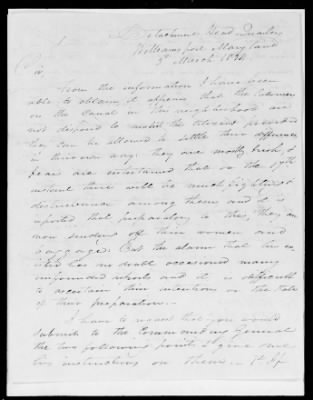 Detachment Head Quarters
Williamsport Maryland
5th March 1834
Sir,
From the information I have been
able to obtain, it appears that the laborers
on the Canal in this neighborhood are
not disposed to molest the citizens provided
they can be allowed to settle their differences
in their own way. they are mostly Irish, &
fears are entertained that on the 17th
instant there will be much fighting &
destruction among them and it is
reported that preparatory to this, they are
now sending off their women and
baggage. But the alarm that has
no doubt occasioned many
unfounded reports and it is difficult
to ascertain their intentions or the state
of their preparation.
I have to request that you would
submit to the Commanding General
the two following points & give me
his instructions on them. 1st If